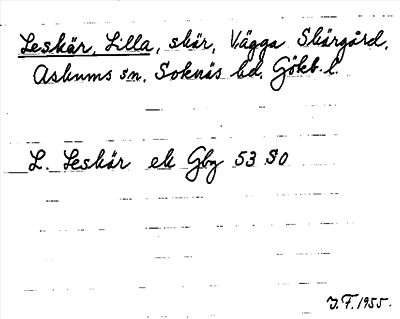 Leskär, Lilla, skär, Vägga Skärgård,
Askums sn, Sotenäs hd, Göteb. l.
L. Leskär ek Gbg 53 SO
J.F. 1955.